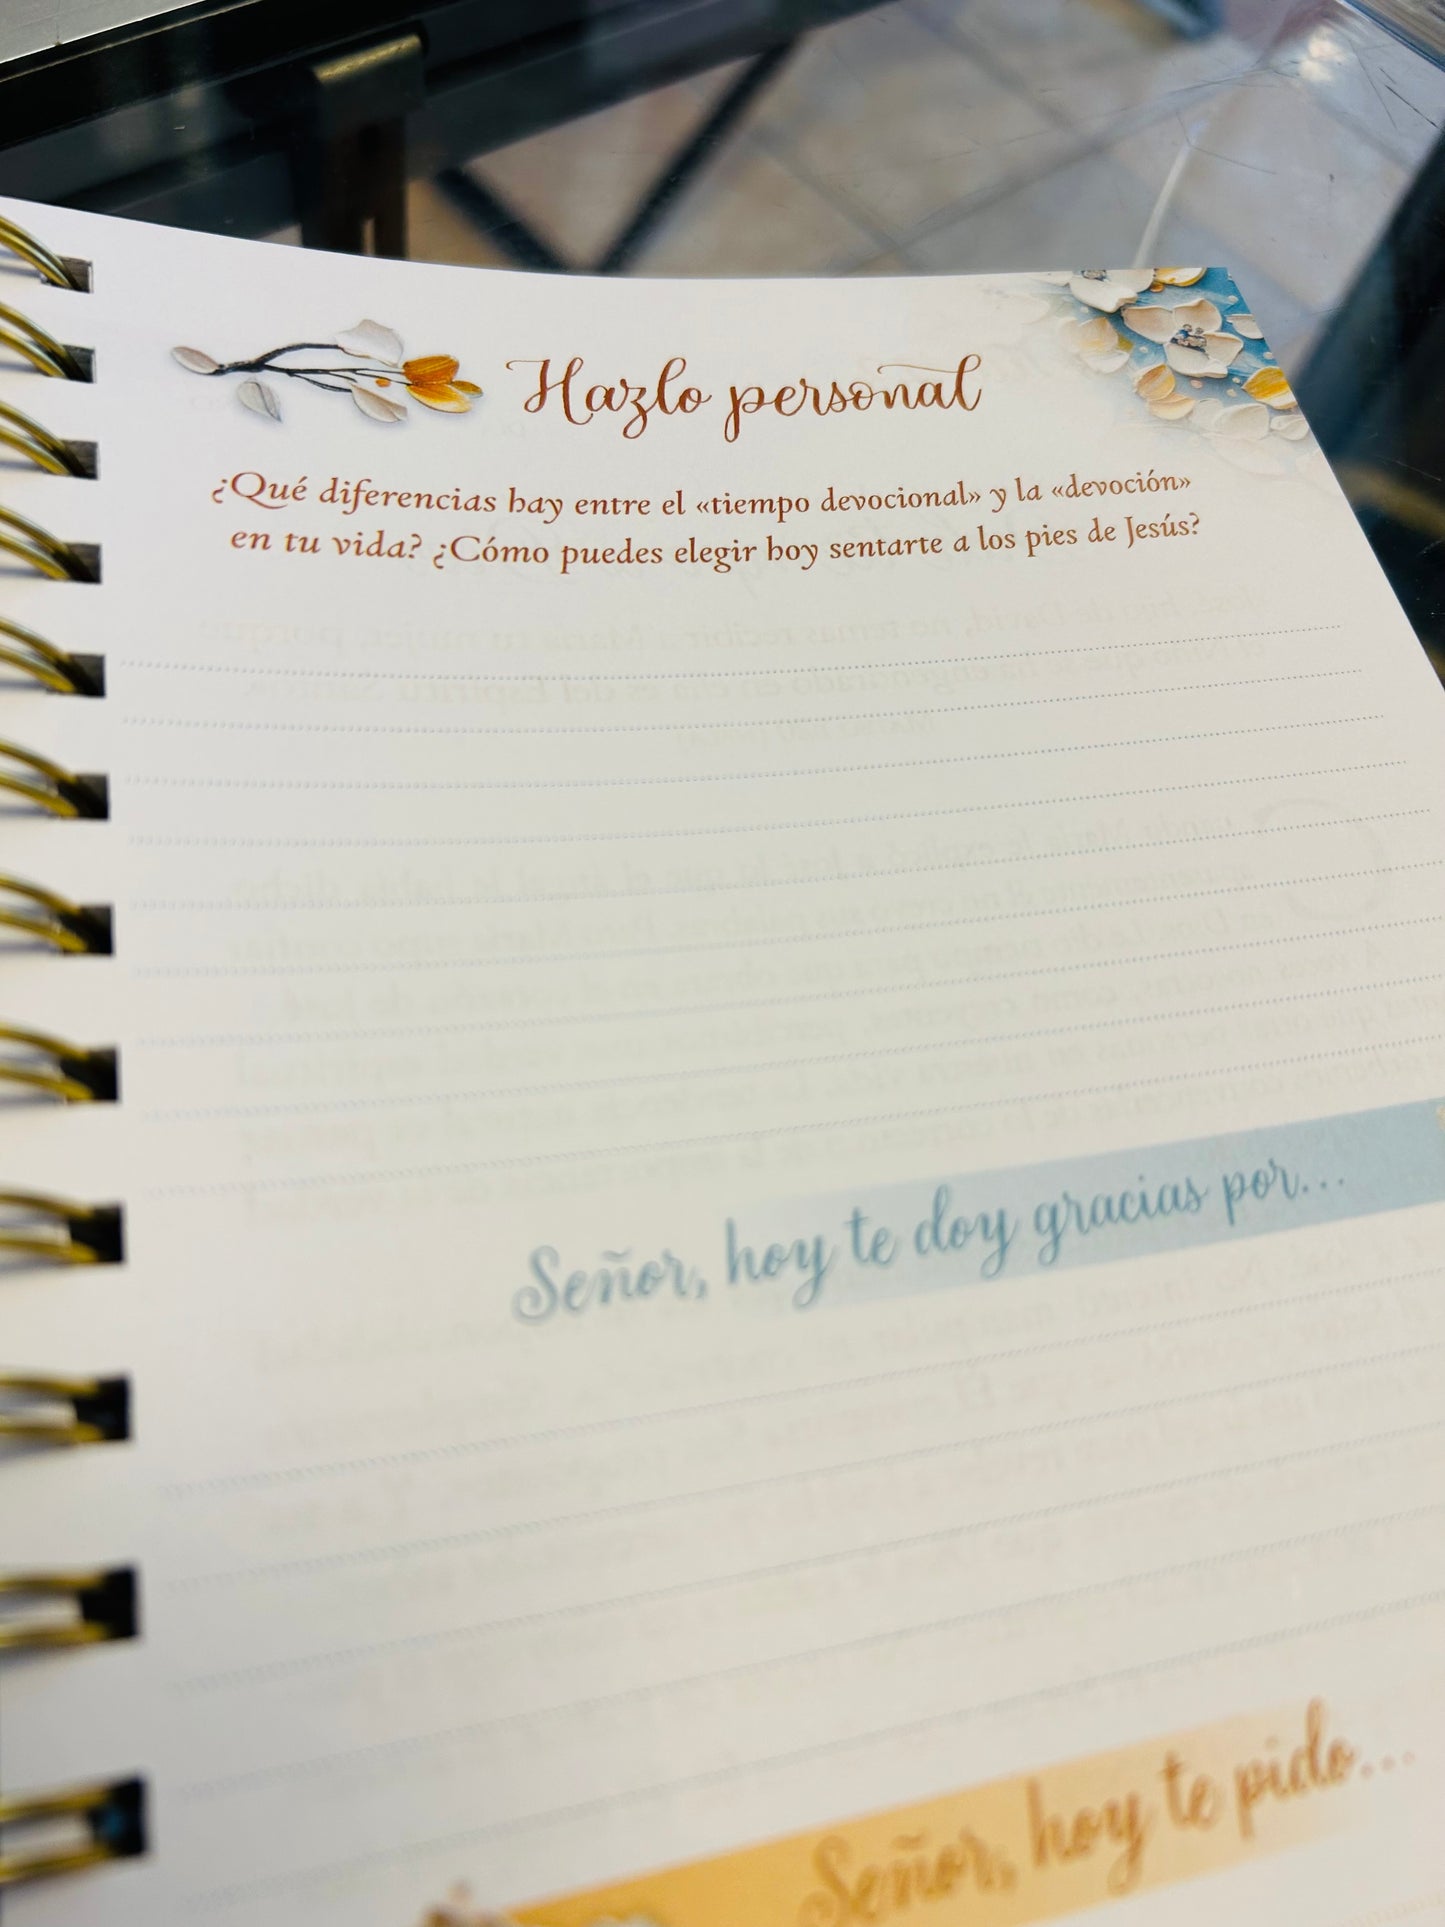 Hazlo personal
¿Qué diferencias hay entre el «tiempo devocional» y la «devoción»
en tu vida? ¿Cómo puedes elegir hoy sentarte a los pies de Jesús?
Señor, hoy te doy gracias por...
Señor, hoy te pido...